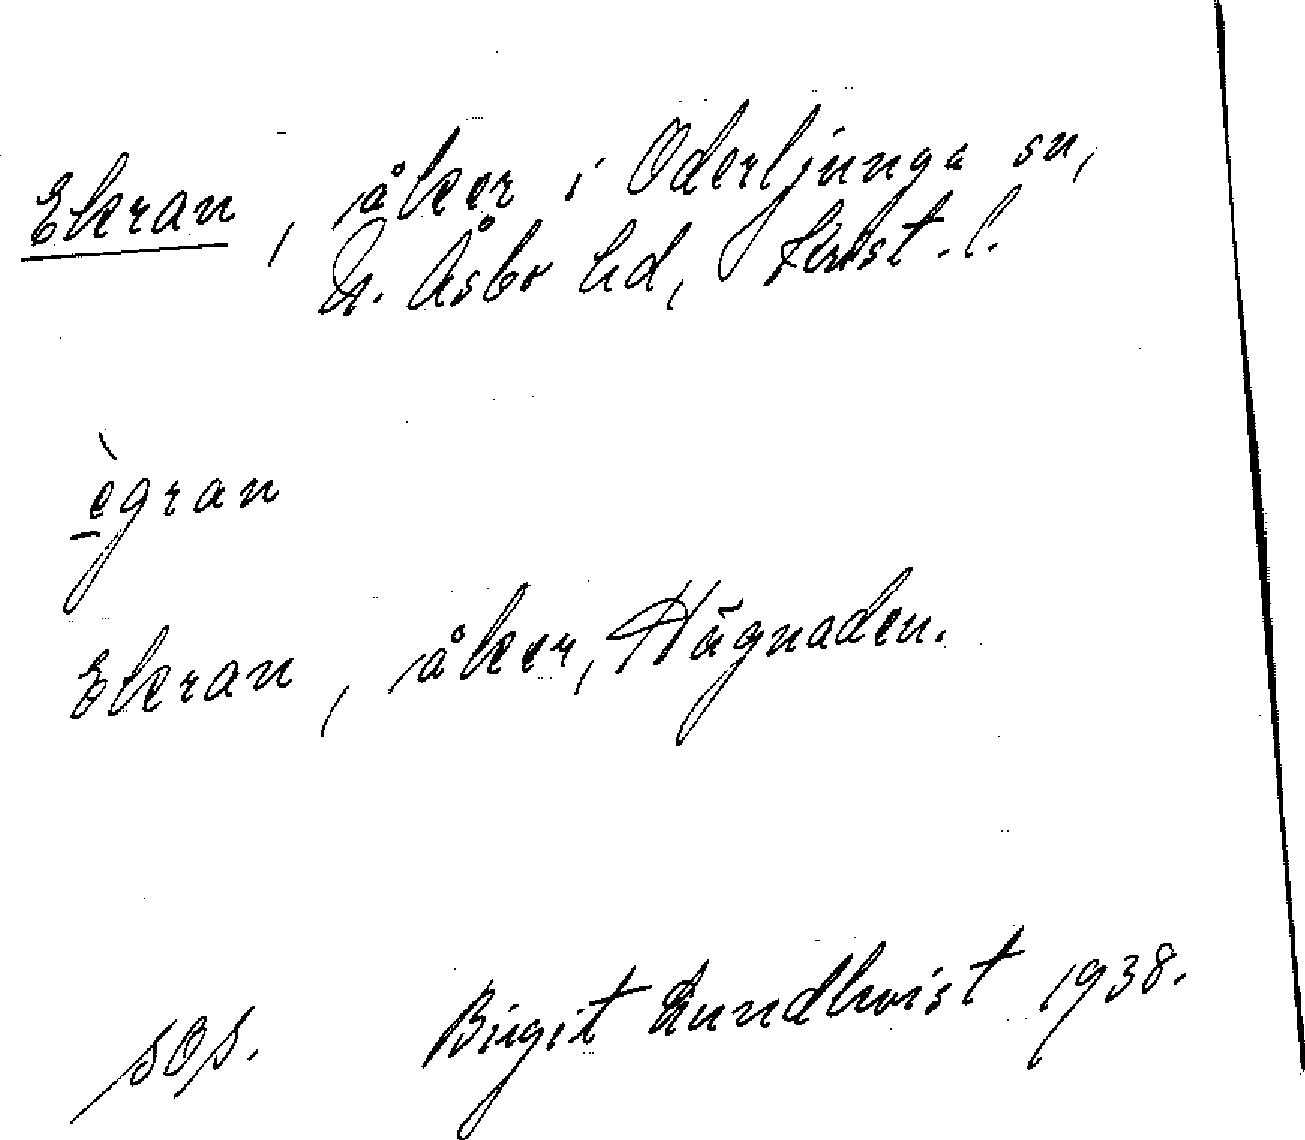 Ekran, åker i Oderljunga sn,
N. Åsbo hd, Krist. l.
ègran
Ekran, åker, Hägnaden.
SOS. Birgit Lundkvist 1938.